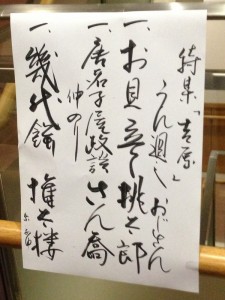 特集「吉原」
うん廻し
一、お見立て 桃太郎
一、唐茄子屋政談 さん喬
仲入り
一、幾代餅 権太楼